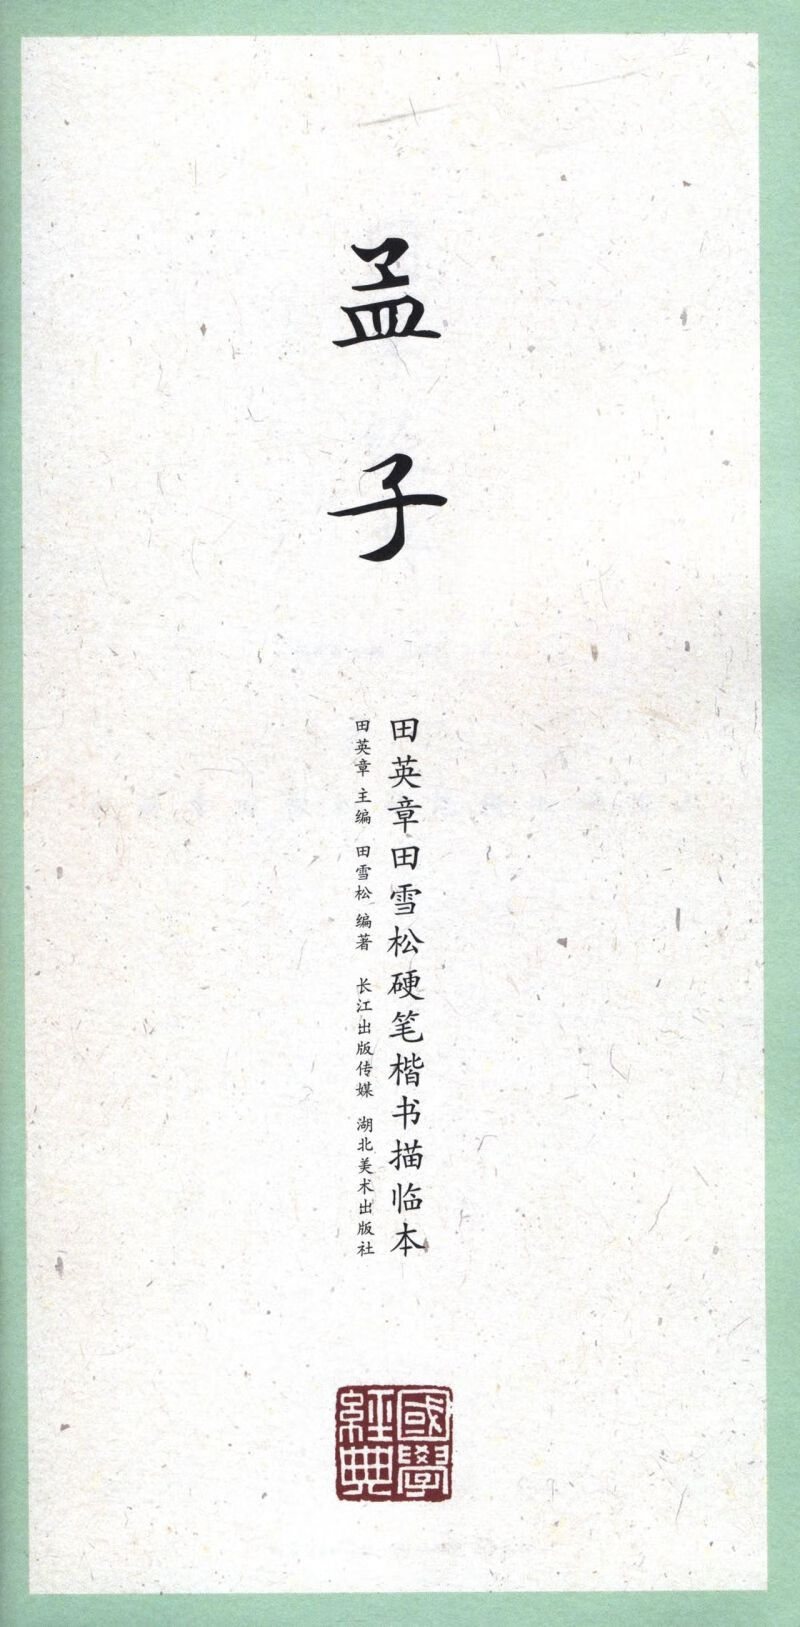 孟子
田英章田雪松硬笔楷书描临本
田英章 主编 田雪松 编著 长江出版传媒 湖北美术出版社
國學
經典